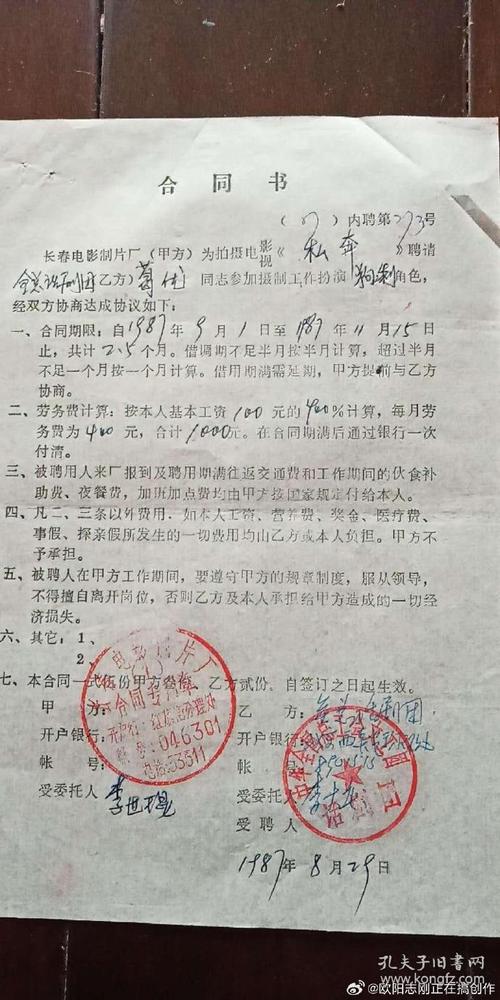 合同书
(87)内聘第273号
长春电影制片厂(甲方)为拍摄电影视《私奔》聘请
全总话剧团(乙方)葛优同志参加摄制工作扮演狗剩角色，
经双方协商达成协议如下：
一、合同期限：自1987年9月1日至1987年11月15日
止，共计2.5个月。借调期不足半月按半月计算，超过半月
不足一个月按一个月计算。借用期满需延期，甲方提前与乙方
协商。
二、劳务费计算：按本人基本工资100元的400%计算，每月劳
务费为400元，合计1000元。在合同期满后通过银行一次
付清。
三、被聘用人来厂报到及聘用期满往返交通费和工作期间的伙食补
助费、夜餐费，加班加点费均由甲方按国家规定付给本人。
四、凡二、三条以外费用．如本人工资、营养费、奖金、医疗费、
事假、探亲假所发生的一切费用均由乙方或本人负担。甲方不
予承担。
五、被聘人在甲方工作期间，要遵守甲方的规章制度，服从领导，
不得擅自离开岗位，否则乙方及本人承担给甲方造成的一切经
济损失。
六、其它：1、
2、
七、本合同一式伍份甲方叁份，乙方贰份，自签订之日起生效。
甲方： 乙方：全总话剧团
开户银行： 开户银行：
帐号： 帐号：
受委托人 李世 受委托人 李
受聘人
1987年8月29日
长春电影制片厂
合同专用章
开户行：红旗街办理处
帐号：046301
电话：53311
中华全国总工会文工团
话剧团
孔夫子旧书网
kongfz.com
@欧阳志刚正在搞创作